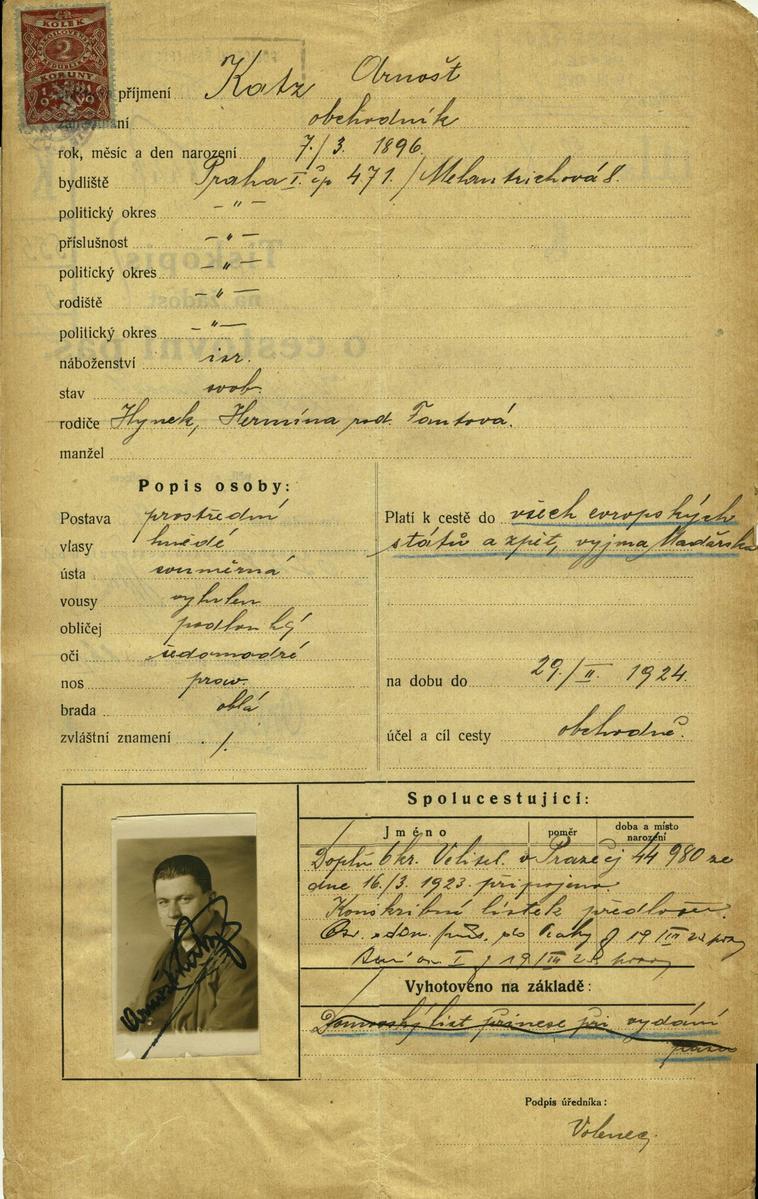 KOLEK
2
KORUNY
1919
příjmení Katz Arnošt
zaměstnání obchodník
rok, měsíc a den narození 7./3. 1896.
bydliště Praha I. čp 471. / Melantrichova 8.
politický okres — " —
příslušnost — " —
politický okres — " —
rodiště — " —
politický okres — " —
náboženství isr.
stav svob.
rodiče Hynek, Hermína rod. Fantová.
manžel
Popis osoby:
Postava prostřední
vlasy hnědé
ústa souměrná
vousy vyholen
obličej podlouhlý
oči šedomodré
nos prav.
brada oblá
zvláštní znamení ./.
Platí k cestě do všech evropských
států a zpět, vyjma Maďarska
na dobu do 29./II. 1924.
účel a cíl cesty obchodně.
Spolucestující:
Jméno poměr doba a místo narození
v Praze čj 44980 ze
dne 16/3. 1923. připojeno.
Konskribní lístek předložen.
19/III 23
I 19/III 23
Vyhotoveno na základě:
Domovský list přinese při vydání
pasu
Podpis úředníka: